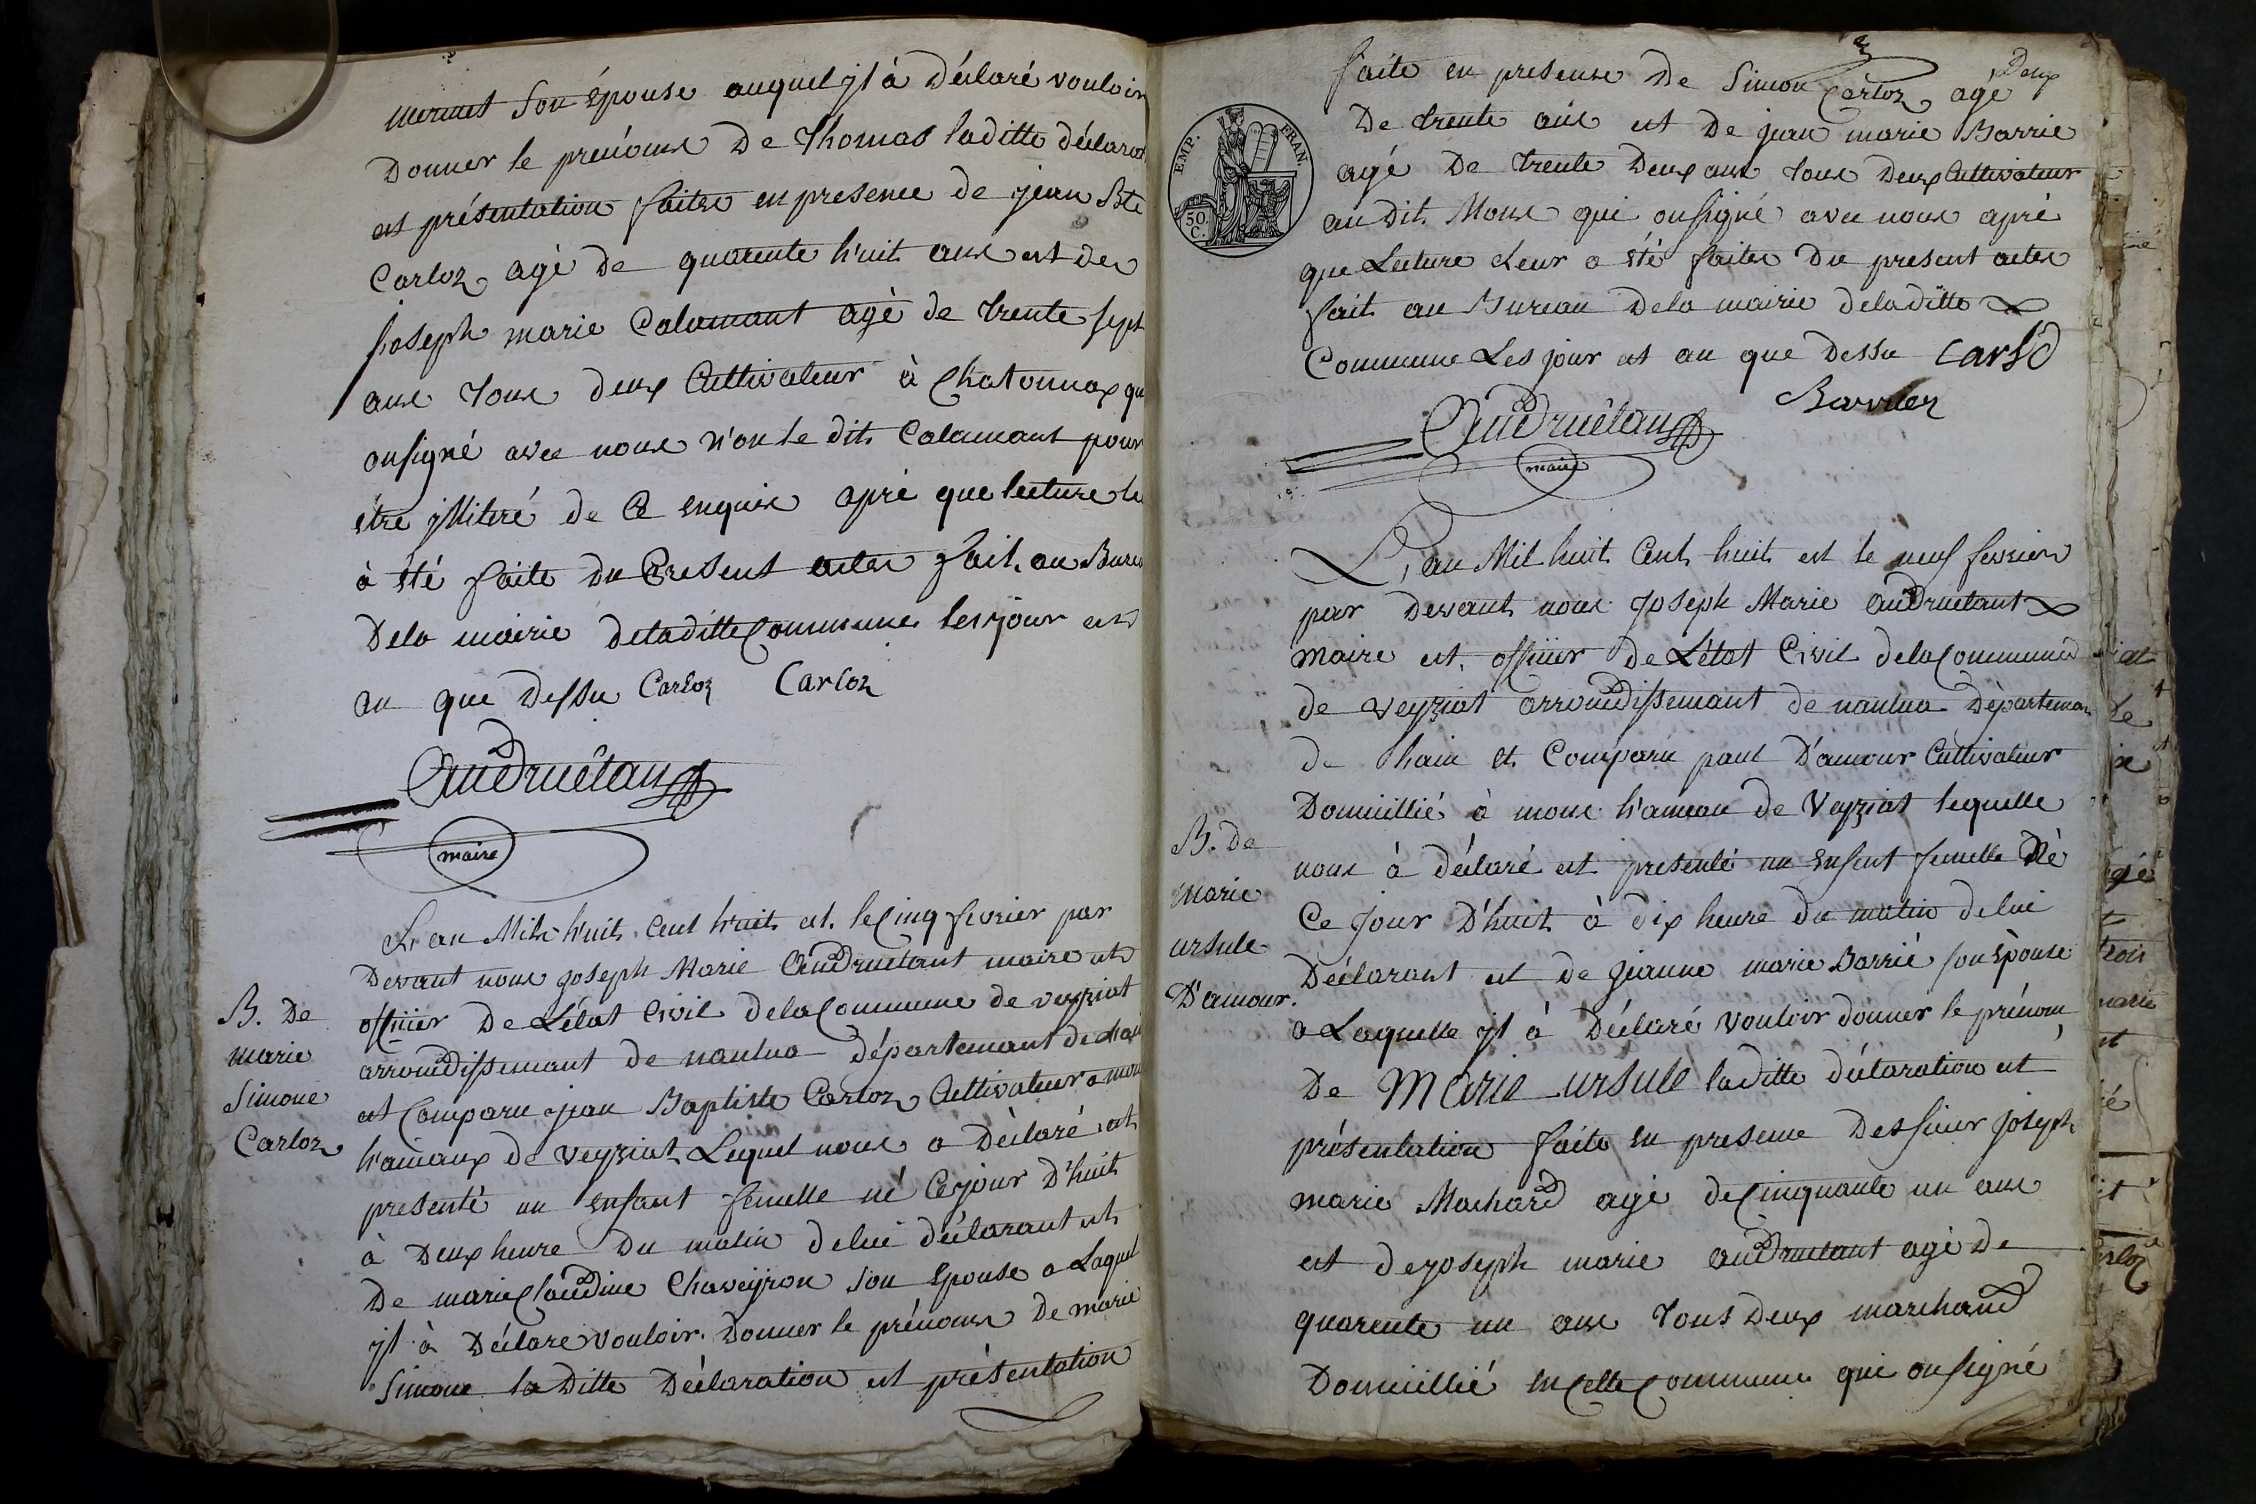 mermet son épouse auquel jl à Déclaré vouloir
Donner le prénoms De Thomas laditte déclarat
et présentation faites en presence de jean Bte
Carloz agé de quarente h'uit ans et de
Joseph marie Calamant agé de trente sept
ans tous deux Cultivateur à Chatonnax qu
onsigné avec nous n'on le dit Calamant pour
étre jllitéré de Ce enquis apré que lecture le
à été faite du Present actes fait au Bure
Dela mairie deladitte Commune les jour et
an que dessu Carloz Carloz
Audruêtant
maire
L'an Mil h'uit Cent h'uit et le Cinq fevrier par
Devant nous joseph Marie Audruetant maire et
officier De L'état Civil dela Commune de veyziat
arroudissemant de nantua département de
et Comparu jean Baptiste Carloz Cultivateur a mon
h'amaux de veyziat Lequel nous a Déclaré et
presenté un enfant femelle né Ce jour D'huit
à Deux heure Du matin delui déclarant et
De marie Claudine Chaveyron son Epouse a Laquel
jl à Déclaré vouloir Donner le prénoms De marie
Simone la Ditte Déclaration et présentation
B. De
marie
Simone
Carloz
Deux
faite en presense De Simon Carloz agé
De trente ans et De jean marie Barrié
agé De trente Deux ans tous Deux Cultivateur
au Dit Mons qui onsigné avec nous apré
que Lecture Leur a été faites Du present actes
fait au Bureau Dela mairie deladitte
Commune Les jour et an que Dessu Carlo
Barrier
Audruêtant
maire
EMP. FRAN.
50. C.
L'an Mil huit Cent huit et le neuf fevrier
par Devant nous Joseph Marie Audruetant
Maire et officier de L'état Civil dela Commune
de Veyziat arroudissemant de nantua Départeman
de Lhain et Comparu paul D'amour Cultivateur
Domicillié à mons h'ameau de Veyziat lequelle
nous à déclaré et presenté un enfent femelle Né
Ce Jour D'huit à dix heure Du matin delui
Déclarant et de Jeanne marie Barrié son Epouse
a Laquelle jl à Déclaré Vouloir donner le prénom
De Marie ursule laditte déclaration et
présentation faite en presense Des sieur joseph
marie Machard agé de Cinquante un ans
et de joseph marie Audruetant agé de
quarente un ans tous Deux marchand
Domicillié en Cette Commune qui onsigné
B. De
marie
ursule
D'amour.